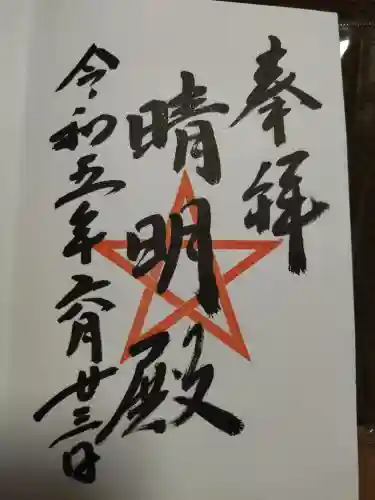 奉拝
晴明殿
令和五年六月廿三日